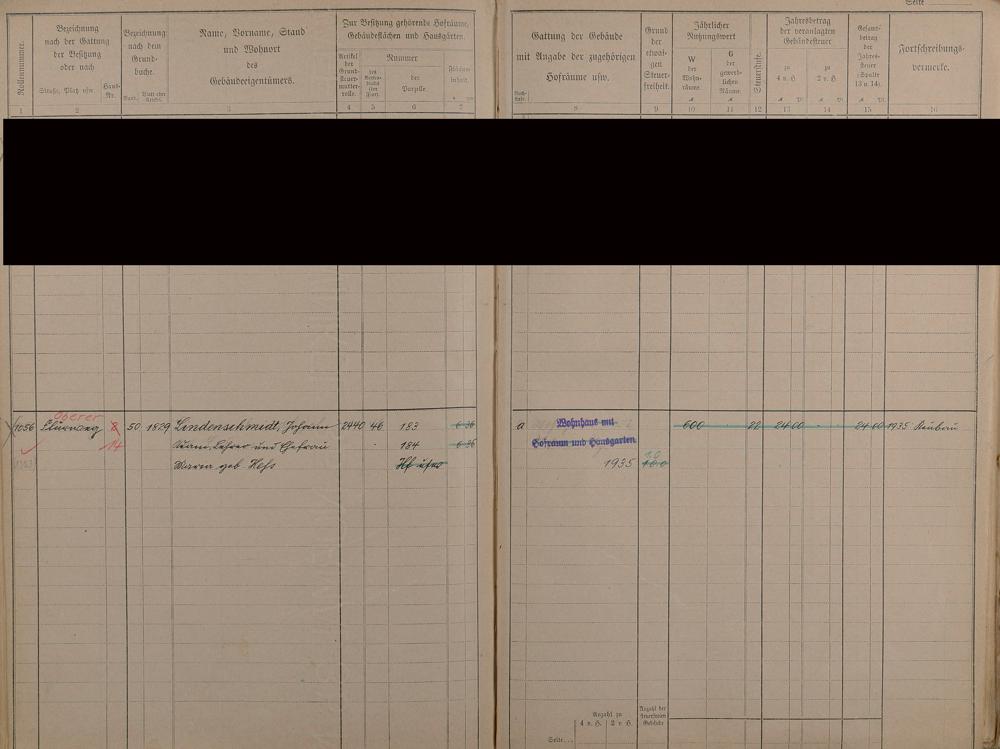 Seite
Rollennummer.
Bezeichnung
nach der Gattung
der Besitzung
oder nach
Straße, Platz usw.
Haus-
Nr.
Bezeichnung
nach dem
Grund-
buche.
Band.
Name, Vorname, Stand
und Wohnort
des
Gebäudeeigentümers.
Zur Besitzung gehörende Hofräume,
Gebäudeflächen und Hausgärten.
Artikel
der
Grund-
steuer-
mutter-
rolle.
Nummer
des
der
Parzelle.
Flächen-
inhalt.
Gattung der Gebäude
mit Angabe der zugehörigen
Hofräume usw.
Grund
der
etwai-
gen
Steuer-
freiheit.
Jährlicher
Nutzungswert
W
der
Wohn-
räume.
G
der
gewerb-
lichen
Räume.
Steuerstufe.
Jahresbetrag
der veranlagten
Gebäudesteuer
zu
4 v. H.
zu
2 v. H.
Gesamt-
betrag
der
Jahres-
steuer
(Spalte
13 u. 14).
Fortschreibungs-
vermerke.
1 2 3 4 5 6 7 8 9 10 11 12 13 14 15 16
Oberer
1056 8 50 1829 Lindenschmidt, Johann 2440 46 183 6 36 a Wohnhaus mit 600 22 24 00 - 24 00 1935 Neubau
14 Adam, Lehrer und Ehefrau - 184 6 36 Hofraum und Hausgarten.
Maria geb. Heß 1935
Anzahl zu
4 v. H. 2 v. H.
Anzahl der
steuerfreien
Gebäude
Seite